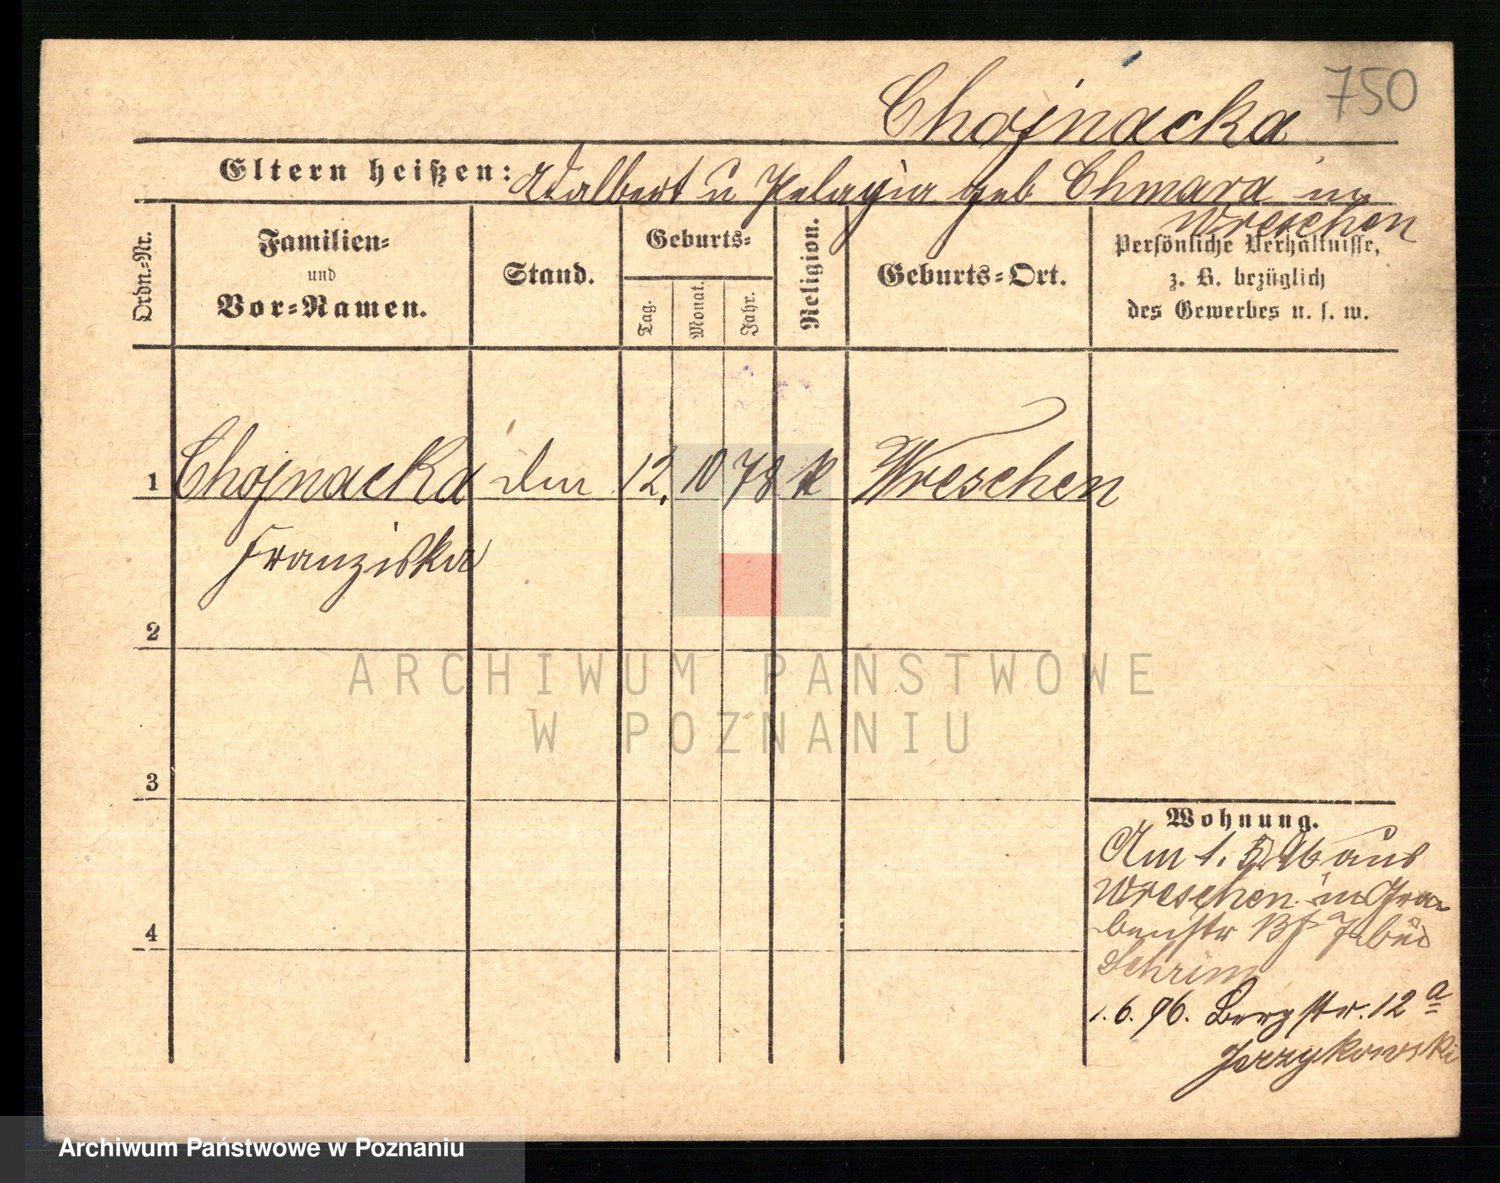 750
Chojnacka
Eltern heißen: Adalbert u Pelagia geb Chmara in
Wreschen
Ordn.-Nr.
Familien-
und
Vor-Namen.
Stand.
Geburts-
Tag.
Monat.
Jahr.
Religion.
Geburts-Ort.
Persönliche Verhältnisse,
z. B. bezüglich
des Gewerbes u. s. w.
1 Chojnacka 12. 10 78 k Wreschen
Franziska
2
3
4
Wohnung.
Am 1. 5. 96 aus
Wreschen in Gra-
benstr bei
Schrim
1.6.96. Bergstr. 12 a
Jerzykowski
ARCHIWUM PAŃSTWOWE
W POZNANIU
Archiwum Państwowe w Poznaniu